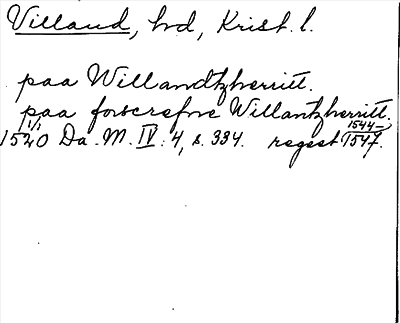 Villand, hrd, Krist. l.
paa Willandtzherritt.
paa forscrefne Willantzherritt.
1/1 1544–
1520 Da. M. IV: 4, s. 334. regest 1547.